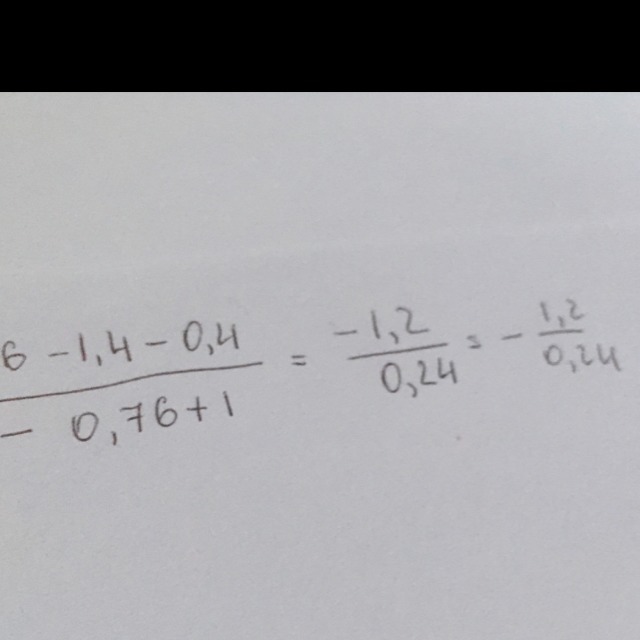 6 - 1,4 - 0,4 / - 0,76 + 1 = - 1,2 / 0,24 = - 1,2 / 0,24